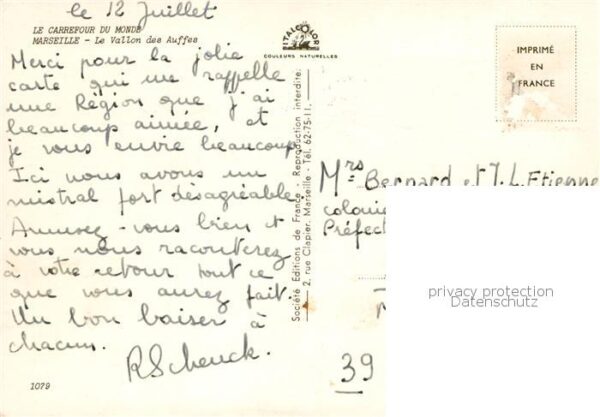 le 12 Juillet
LE CARREFOUR DU MONDE
MARSEILLE - Le Vallon des Auffes
Merci pour la jolie
carte qui me rappelle
une Région que j'ai
beaucoup aimée, et
je vous envie beaucoup
Ici nous avons un
mistral fort désagréable
Amusez-vous bien et
vous nous raconterez
à votre retour tout ce
que vous aurez fait
Un bon baiser à
chacun.
RScheuck.
1079
ITALCOLOR
COULEURS NATURELLES
Société Editions de France - Reproduction interdite.
2, rue Clapier, Marseille - Tél. 62-75-11
IMPRIMÉ
EN
FRANCE
Mrs Bernard et J.L. Etienne
colonie
Préfect
39
privacy protection
Datenschutz